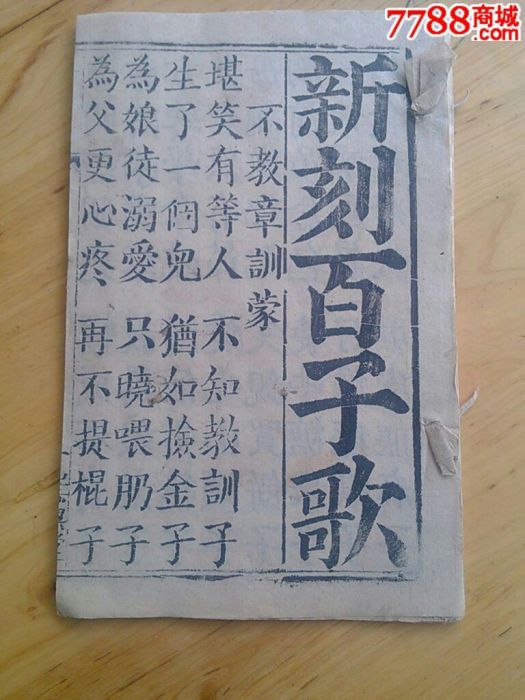 7788商城
新刻百子歌
不教章訓蒙
堪笑有等人 不知教訓子
生了一個兒 猶如撿金子
為娘徒溺愛 只曉喂肕子
為父更心疼 再不提棍子